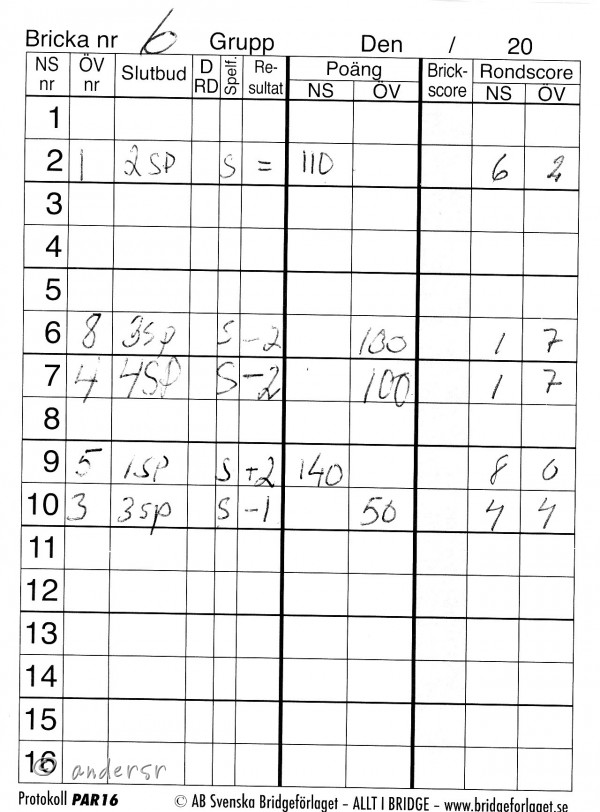 Bricka nr 6 Grupp Den / 20
NS nr ÖV nr Slutbud D RD Spelf. Re-sultat Poäng NS ÖV Brick-score Rondscore NS ÖV
1
2 1 2SP S = 110 6 2
3
4
5
6 8 3sp S -2 100 1 7
7 4 4SP S -2 100 1 7
8
9 5 1SP S +2 140 8 0
10 3 3sp S -1 50 4 4
11
12
13
14
15
16 © andersr
Protokoll PAR16 © AB Svenska Bridgeförlaget – ALLT I BRIDGE – www.bridgeforlaget.se